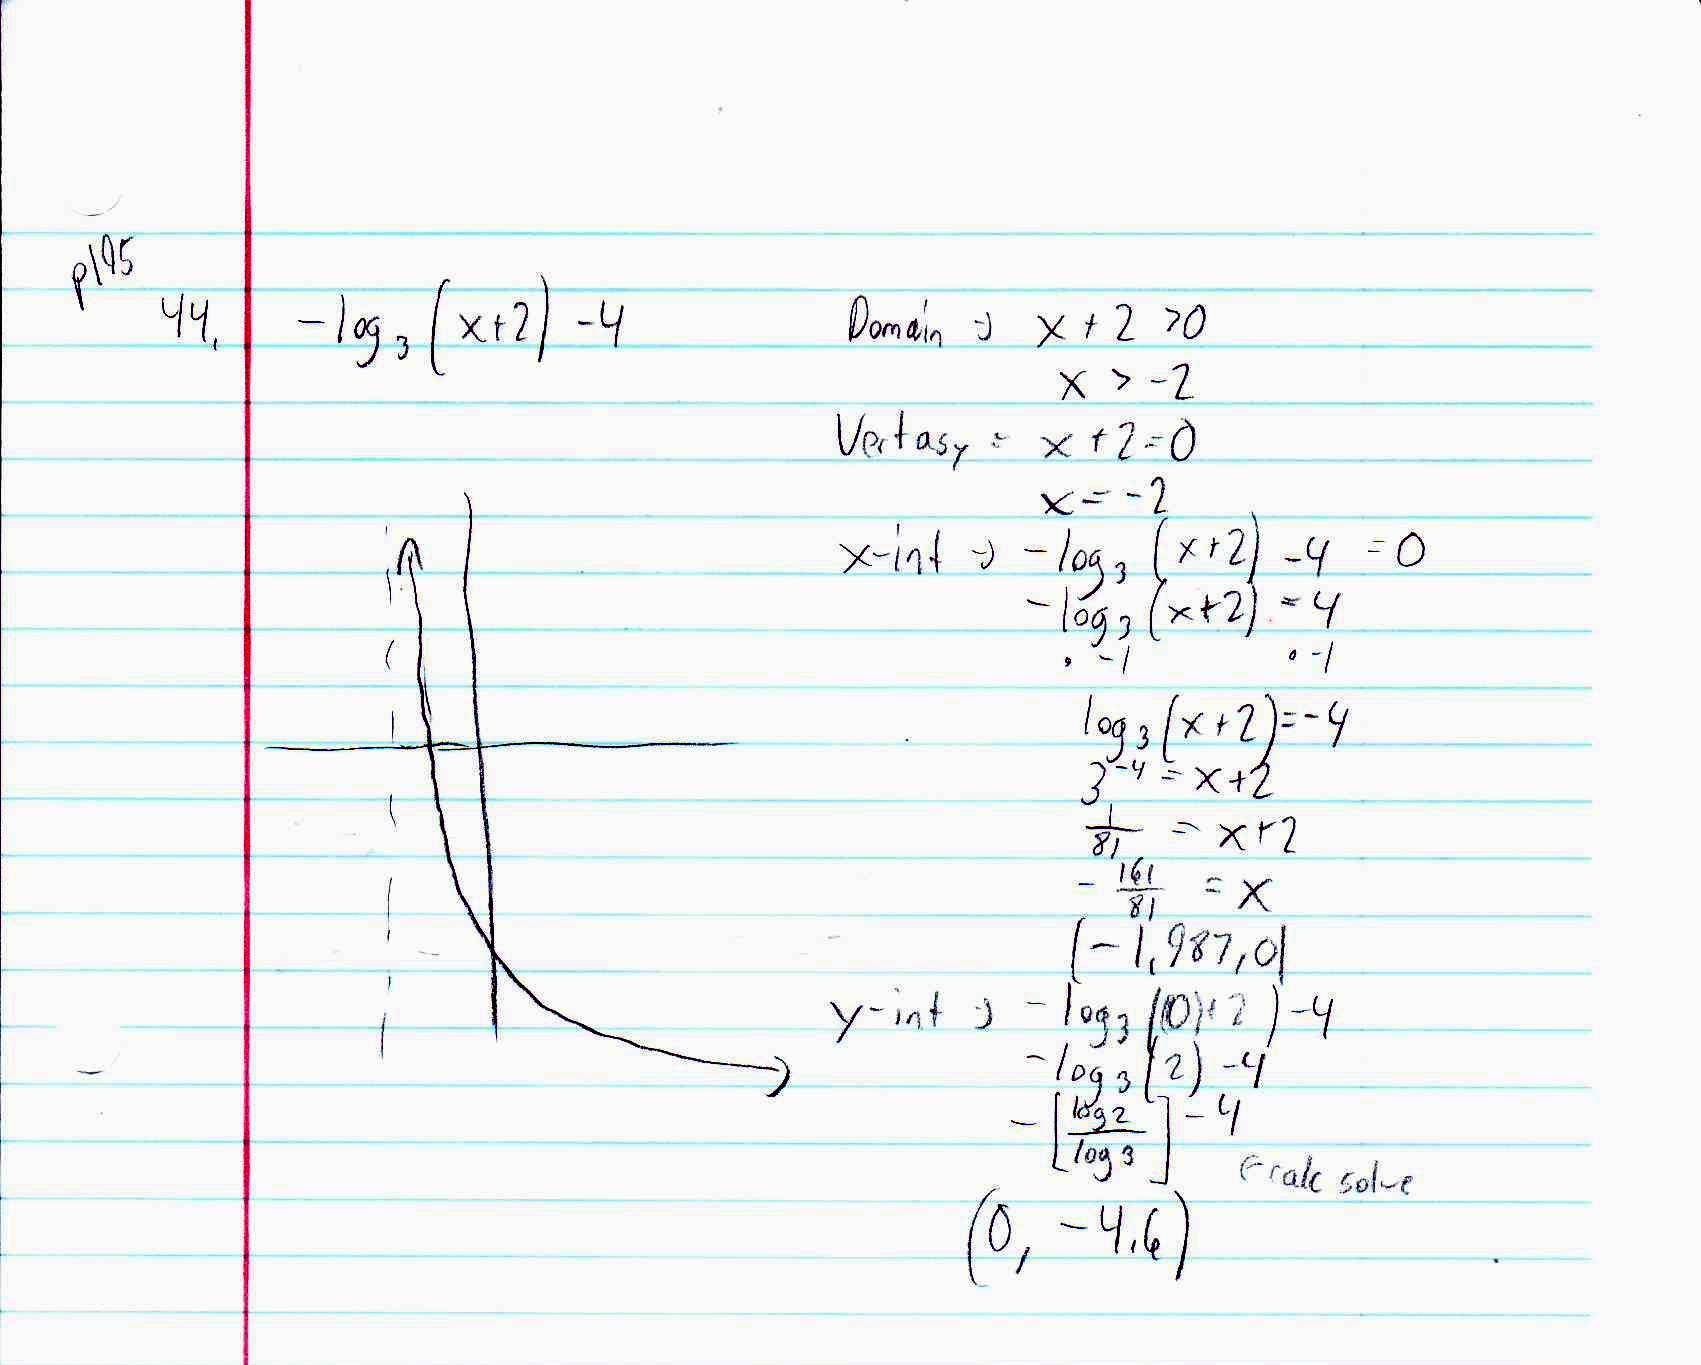 p195
44. -log₃(x+2) -4
Domain ⇒ x + 2 >0
x > -2
Vert asy = x + 2 = 0
x = -2
x-int ⇒ -log₃(x+2) -4 = 0
-log₃(x+2) = 4
· -1 · -1
log₃(x+2) = -4
3⁻⁴ = x+2
1/81 = x+2
- 161/81 = x
(-1.987, 0)
y-int ⇒ -log₃((0)+2) -4
-log₃(2) -4
-[log 2/log 3] -4
solve
(0, -4.6)